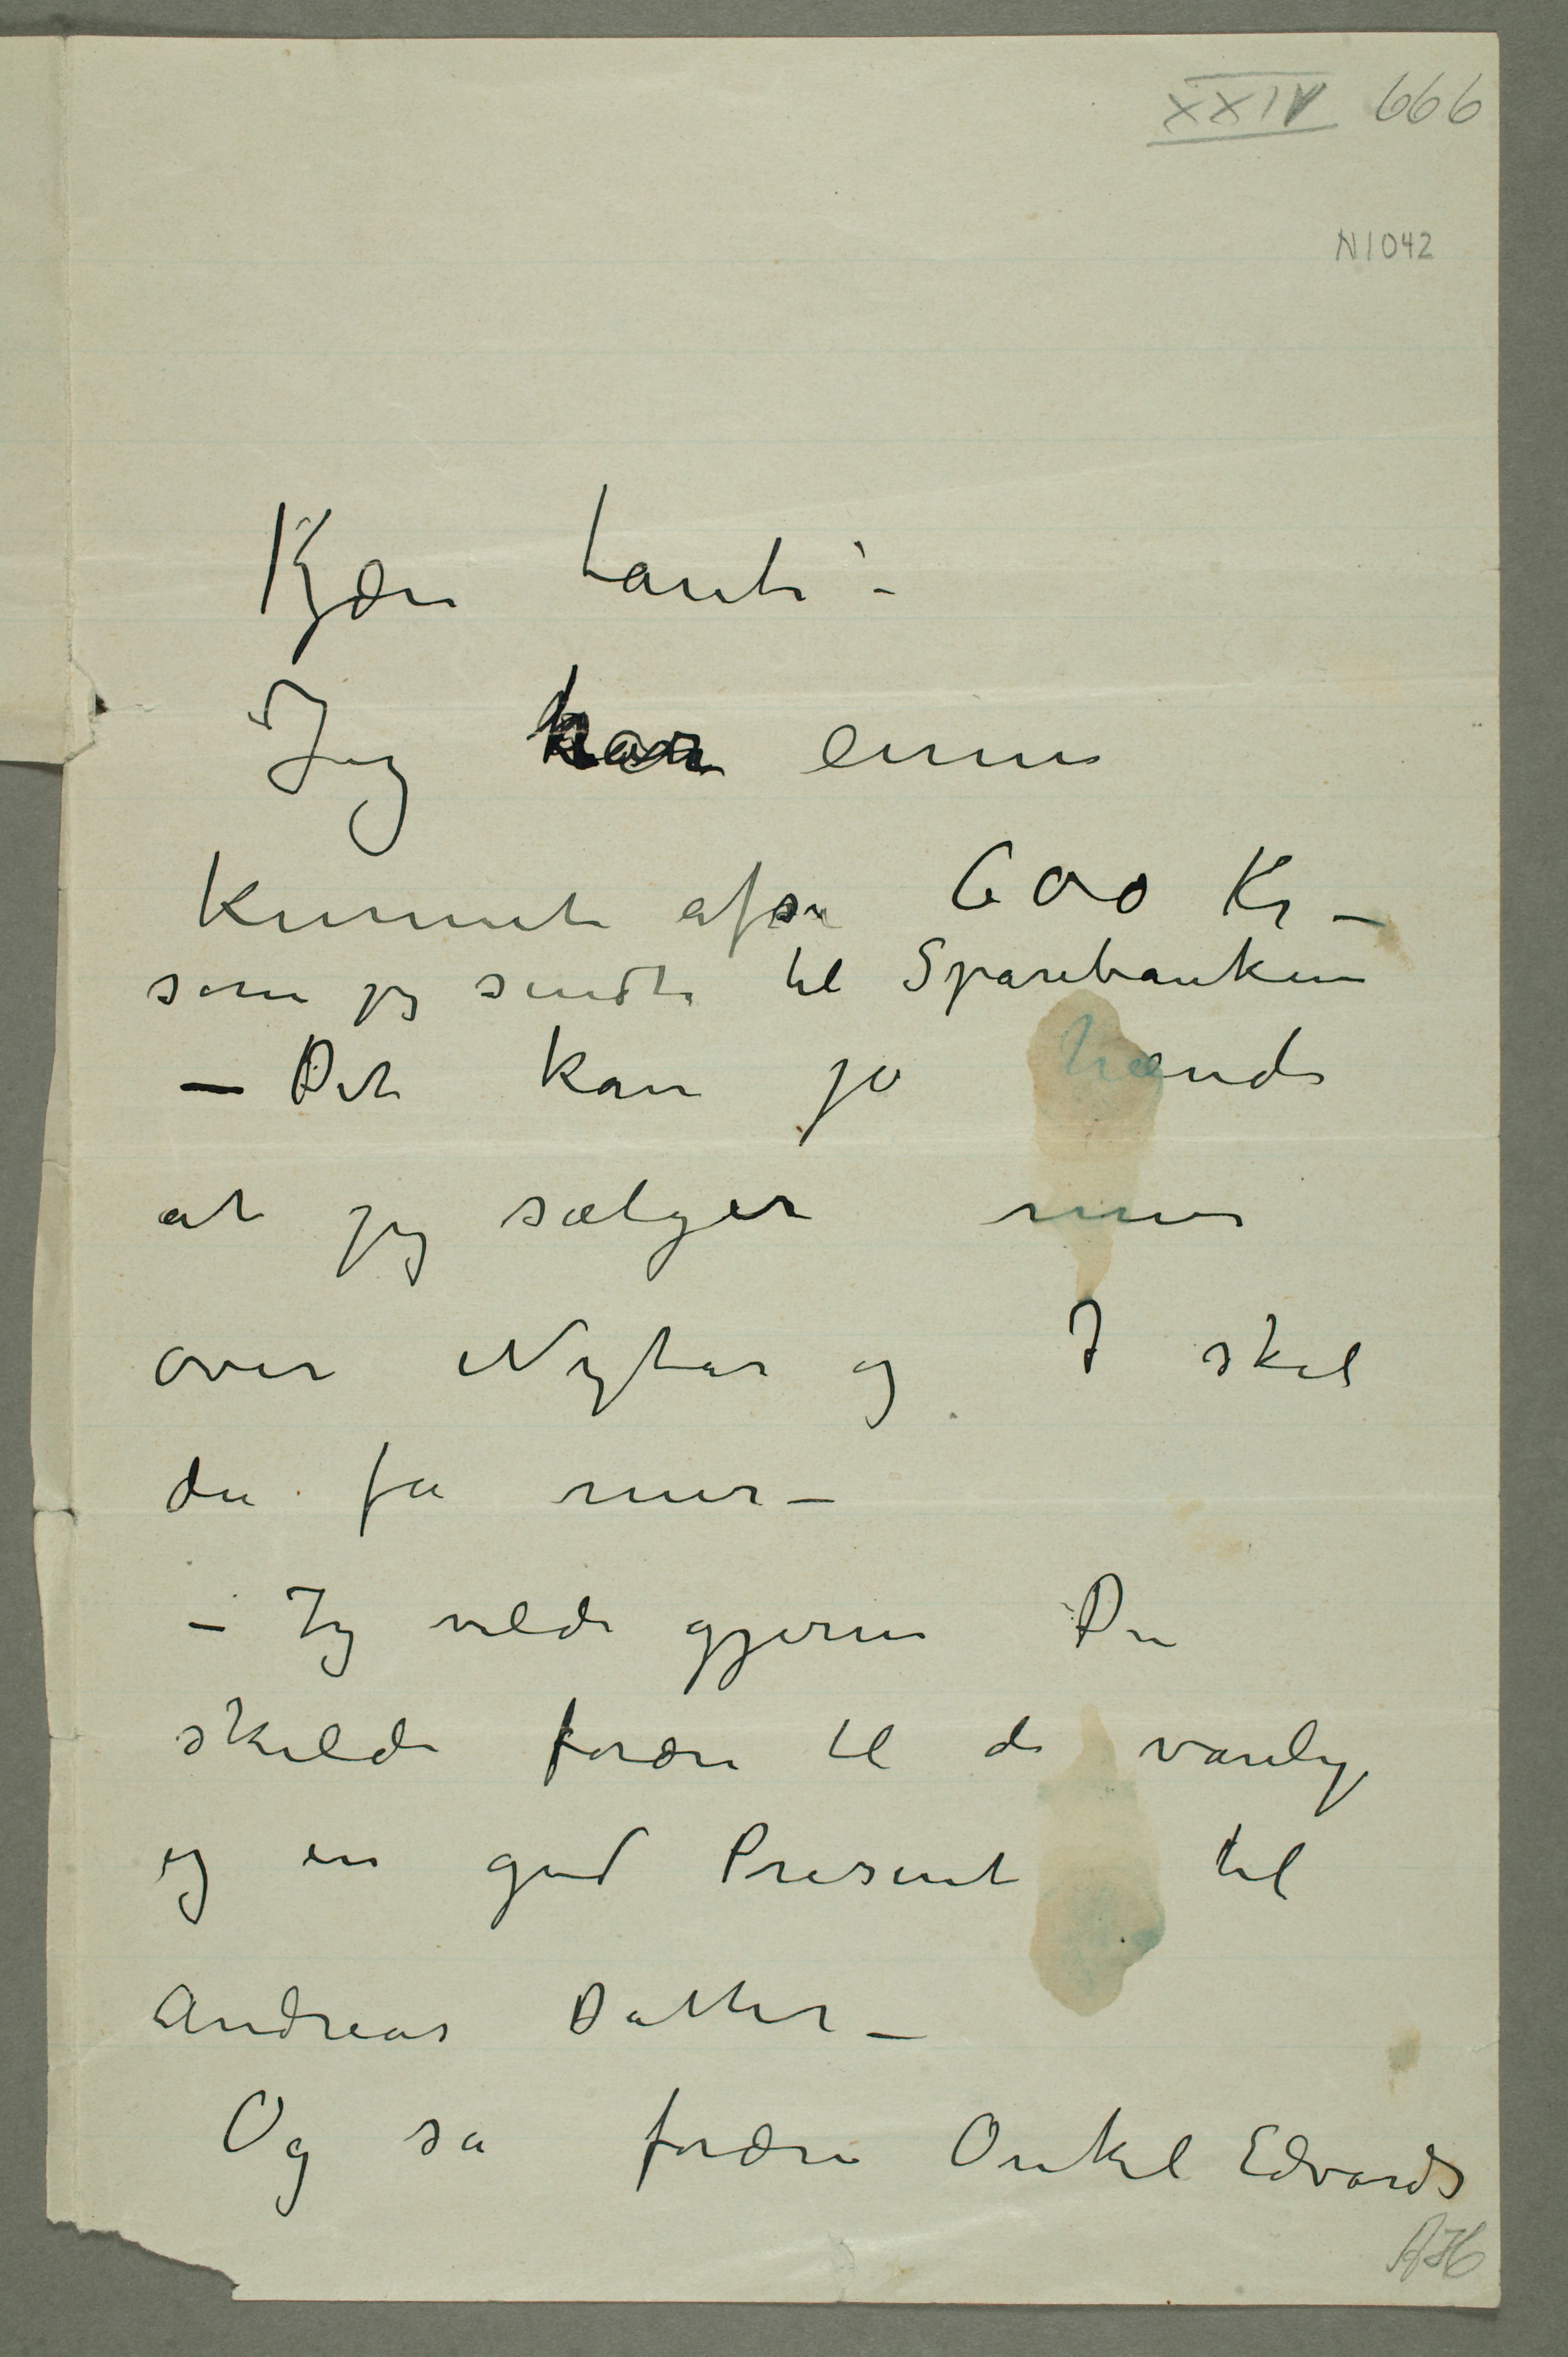 XXIV 666
N1042
Kjære tante –
Jeg har ennu
kunnet afse 600 Kr –
som jeg sendte til Sparebanken
– Det kan jo hænde
at jeg sælger mer
over Nytår og I skal
da få mer –
– Jeg vilde gjerne Du
skulde forære til de vanlige
og en god Present til
Andreas Datter –
Og så forære Onkel Edvards